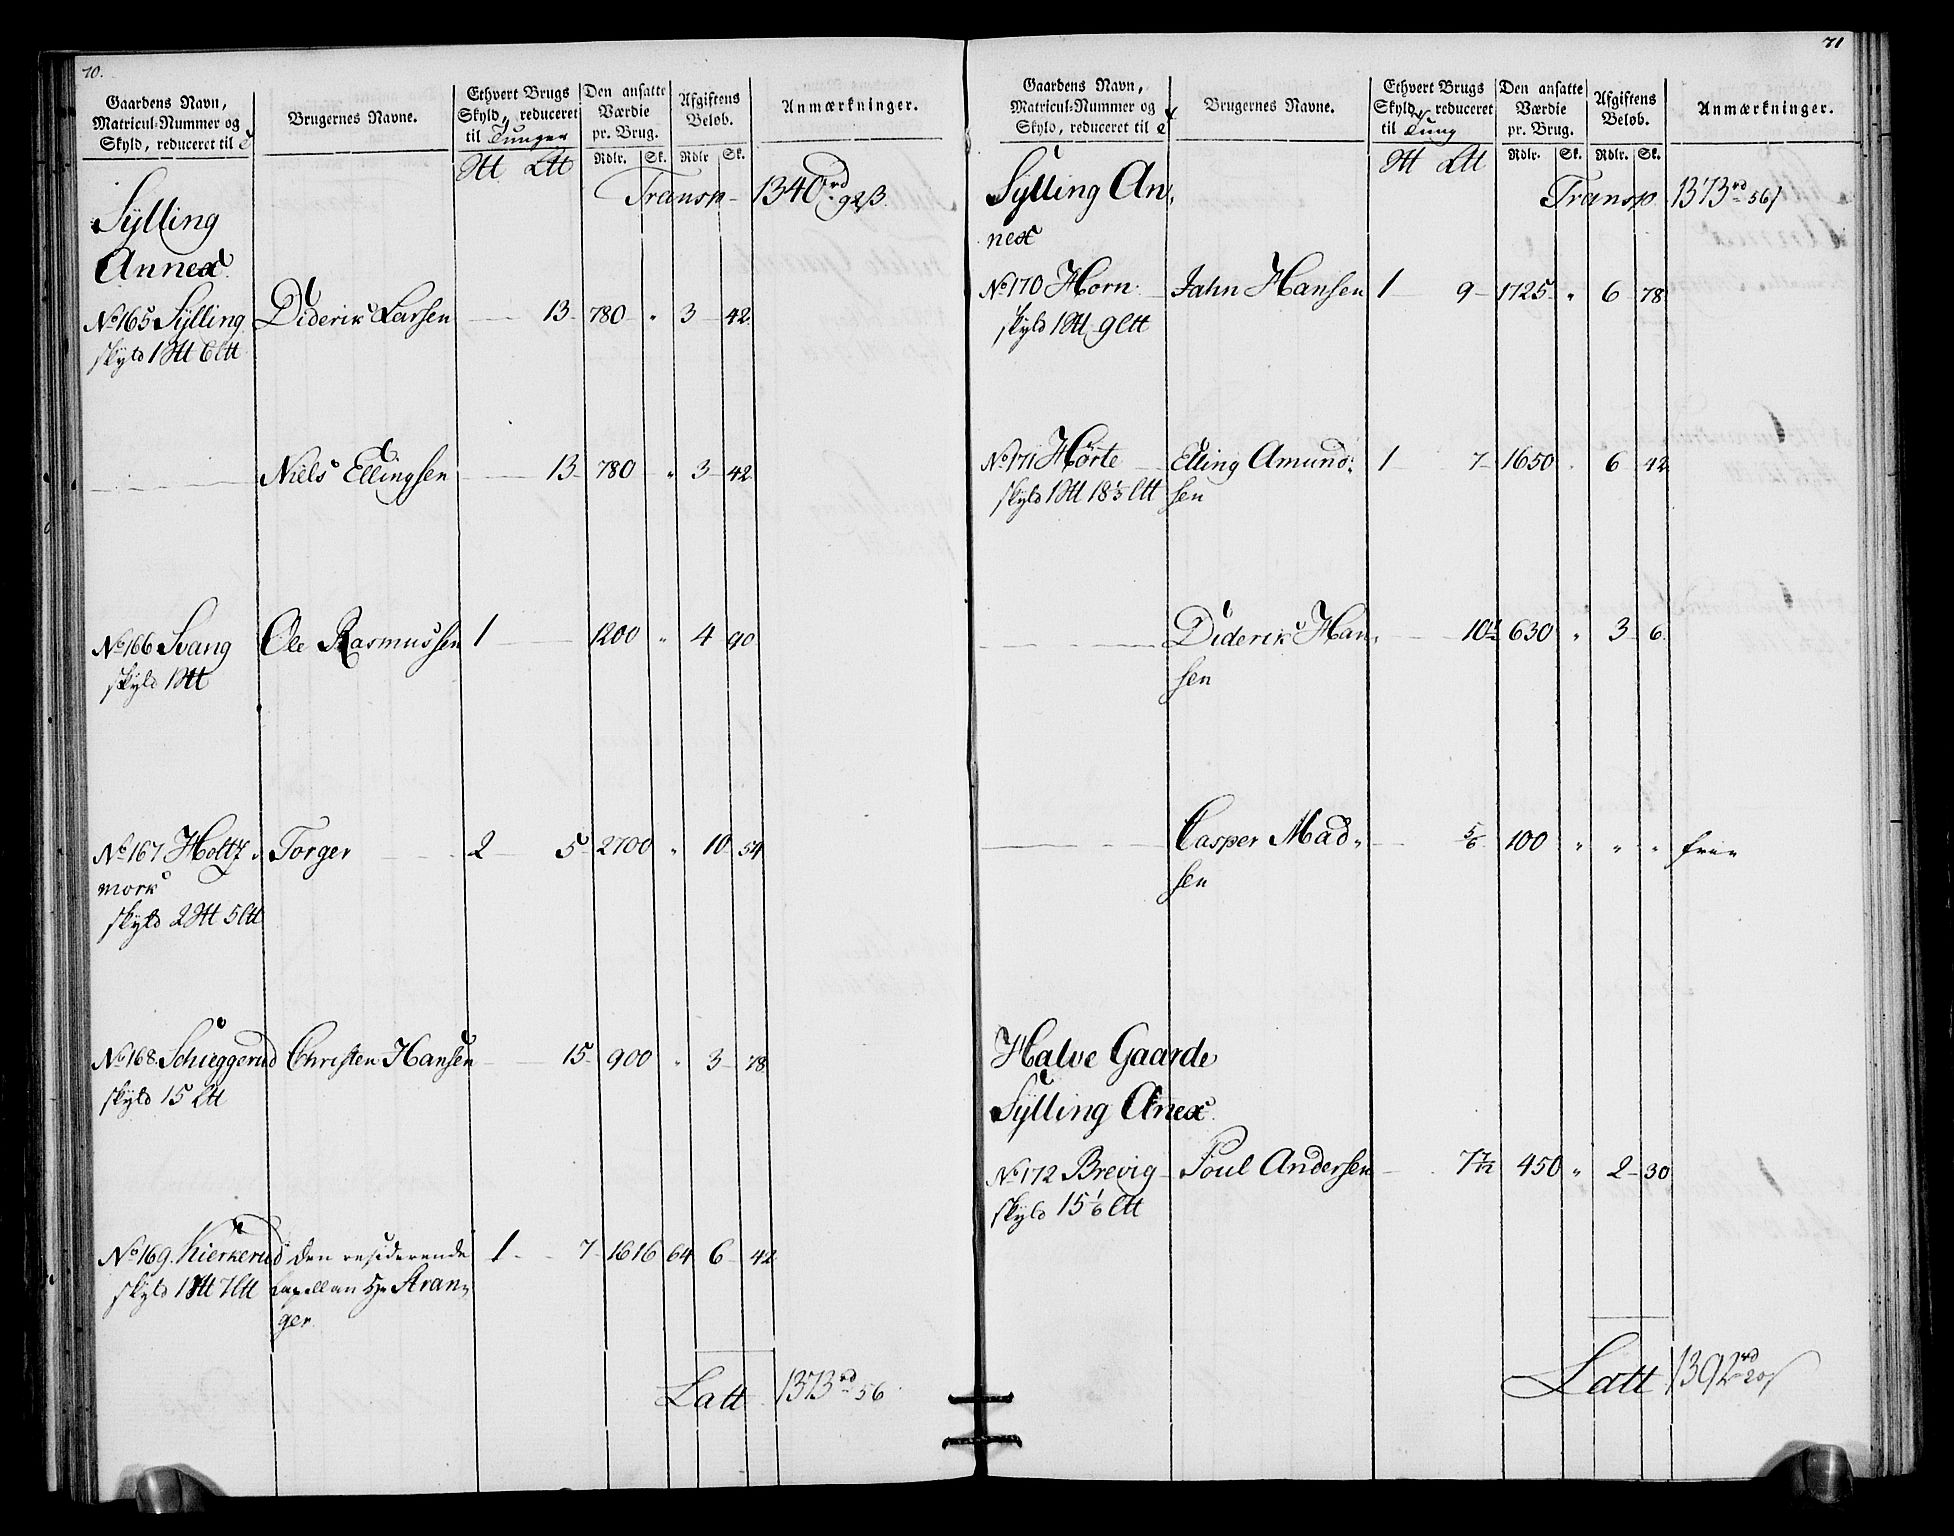 70.
Gaardens Navn, Matricul-Nummer og Skyld, reduceret til
Brugernes Navne.
Ethvert Brugs Skyld, reduceret til Tunger
Den ansatte Værdie pr. Brug.
Afgiftens Beløb.
Anmærkninger.
Rdlr. Sk. Rdlr Sk.
Transp 1340 rd 92 β
Sylling
Annex
No 165 Sylling Diderik Larsen 13 780 " 3 42
skyld 1 6
Niels Ellingsen 13 780 " 3 42
No 166 Svang Ole Rasmussen 1 1200 " 4 90
skyld 1
No 167 Holtz- Torger 2 5 2700 " 10 54
mork
skyld 2 5
No 168. Schieggerud Christen Hansen 15 900 " 3 78
skyld 15
No 169. Kierkerud den residerende 1 7 1616 64 6 42
skyld 1 7 Capellan Hr Stran-
ger
Latt 1373 rd 56
71
Gaardens Navn, Matricul-Nummer og Skyld, reduceret til
Brugernes Navne.
Ethvert Brugs Skyld, reduceret til Tung
Den ansatte Værdie pr. Brug.
Afgiftens Beløb.
Anmærkninger.
Rdlr. Sk. Rdlr. Sk.
Sylling An- Transp. 1373 rd 56
nex
No 170 Horn Jahn Hansen 1 9 1725 " 6 78
skyld 1 9
No 171 Hørte Elling Amund- 1 7 1650 " 6 42
skyld 1 18 1/3 sen
Diderik Han- 10 1/2 630 " 3 6
sen
Casper Mad- 5/6 100 " " " frie
sen
Halve Gaarde
Sylling Anex
No 172 Brevig Poul Andersen 7 7/12 450 " 2 30
skyld 15 1/6
Latt 1392 rd 20